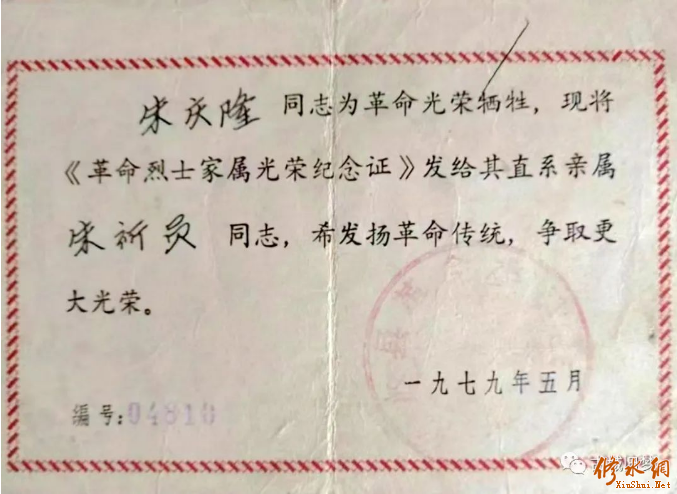 宋庆隆 同志为革命光荣牺牲，现将
《革命烈士家属光荣纪念证》发给其直系亲属
宋祈员 同志，希发扬革命传统，争取更
大光荣。
一九七九年五月
编号：04810
修水網
XiuShui.Net